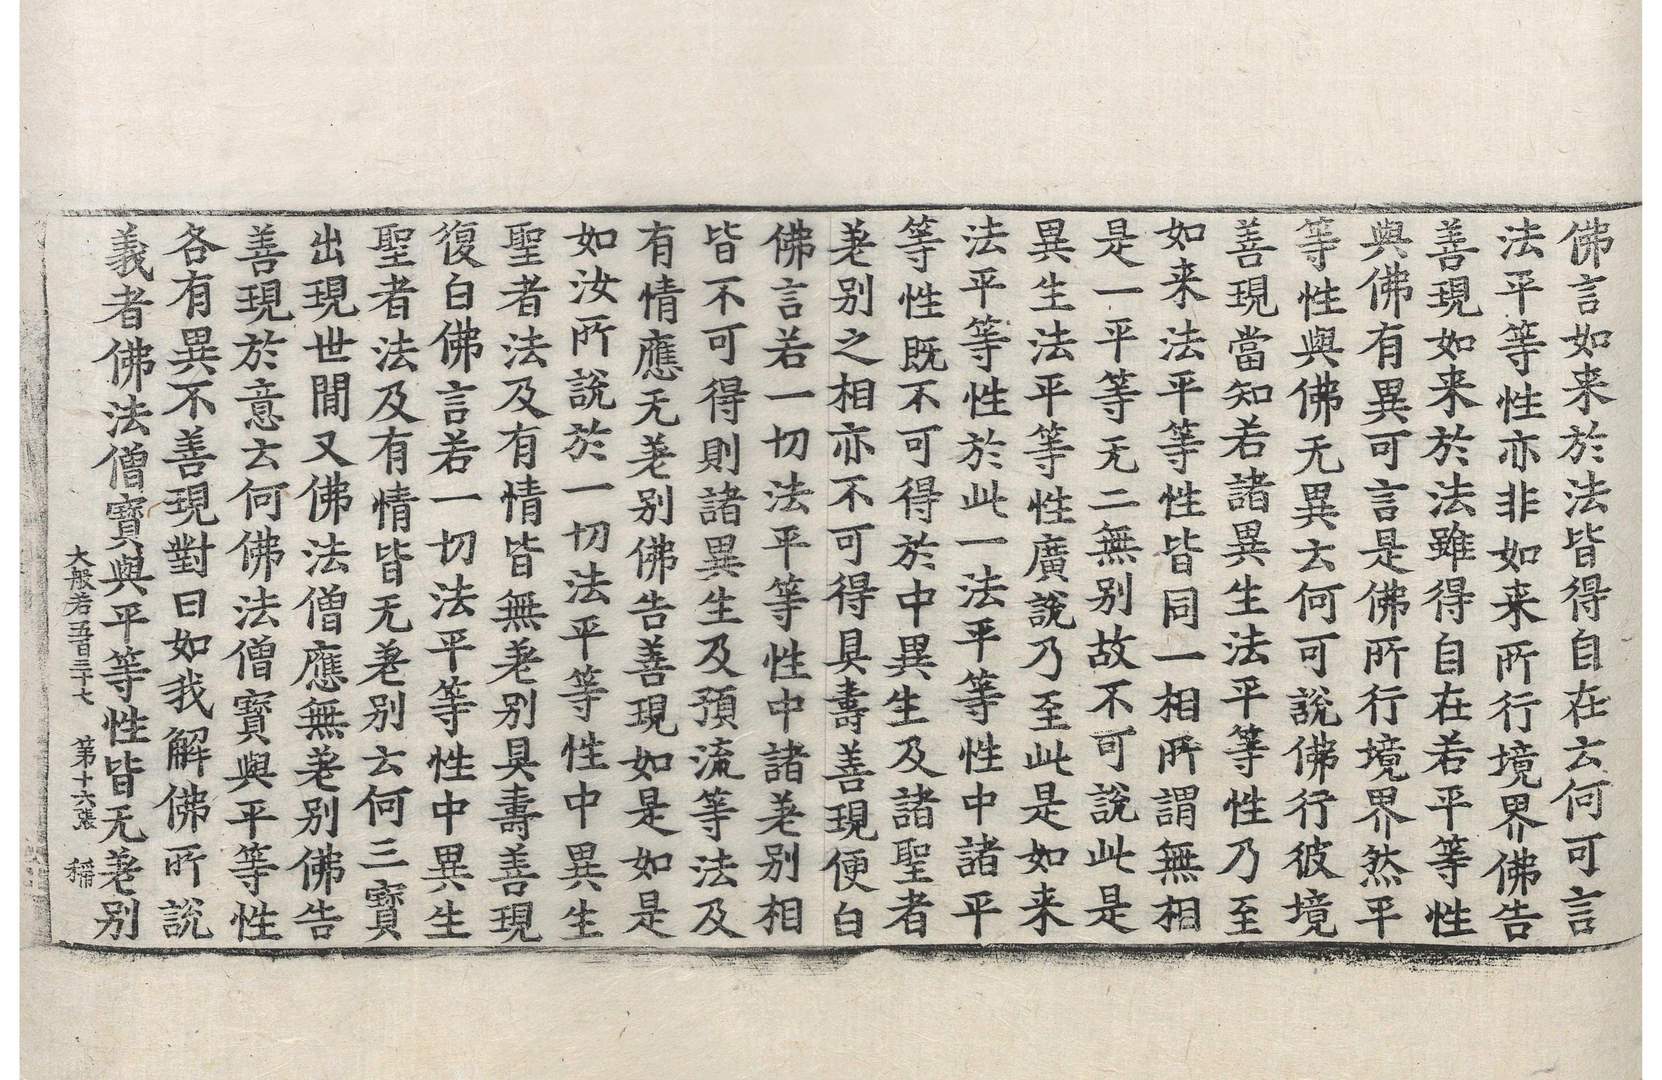 佛言如来於法皆得自在云何可言
法平等性亦非如来所行境界佛告
善現如来於法雖得自在若平等性
與佛有異可言是佛所行境界然平
等性與佛无異云何可說佛行彼境
善現當知若諸異生法平等性乃至
如来法平等性皆同一相所謂無相
是一平等无二無別故不可說此是
異生法平等性廣說乃至此是如来
法平等性於此一法平等性中諸平
等性既不可得於中異生及諸聖者
差别之相亦不可得具壽善現便白
佛言若一切法平等性中諸差别相
皆不可得則諸異生及預流等法及
有情應无差别佛告善現如是如是
如汝所說於一切法平等性中異生
聖者法及有情皆無差别具壽善現
復白佛言若一切法平等性中異生
聖者法及有情皆无差别云何三寶
出現世間又佛法僧應無差别佛告
善現於意云何佛法僧寶與平等性
各有異不善現對曰如我解佛所說
義者佛法僧寶與平等性皆无差别
大般若五百三十七 第十六張 稱